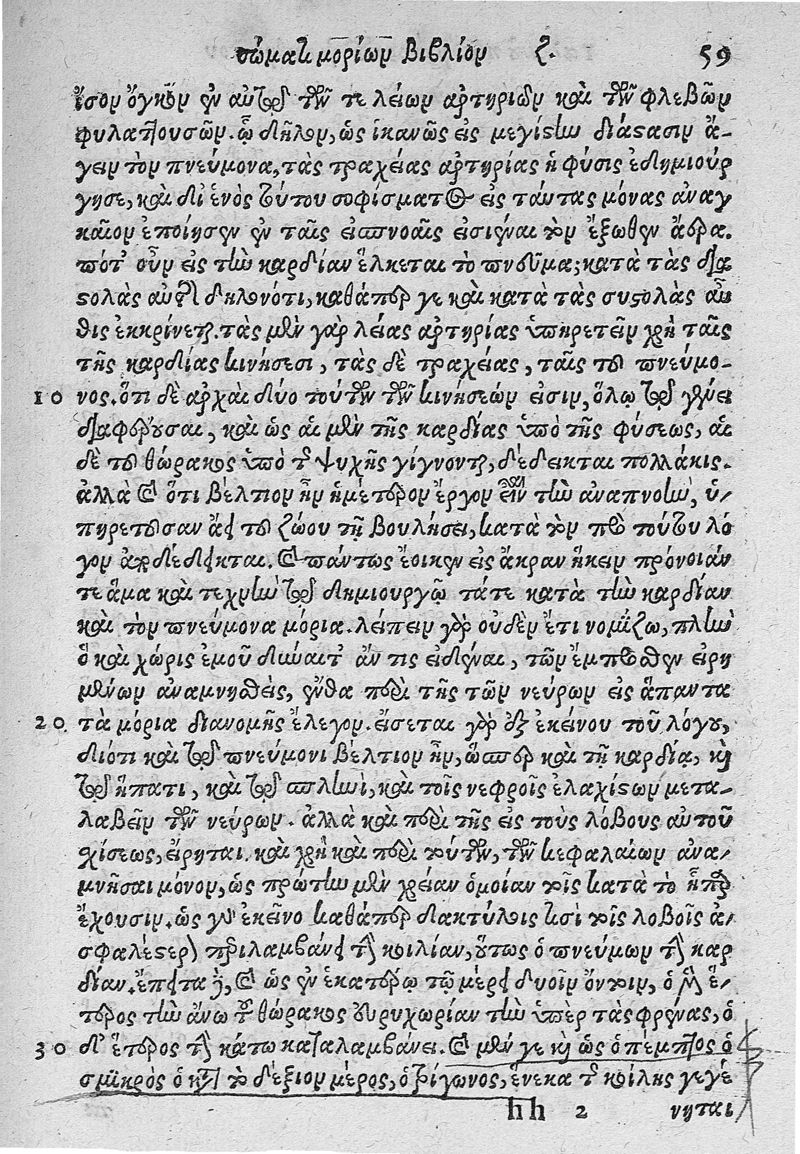 σώματι μορίων Βιβλίον ζ. 59
ἴσον ὄγκον ἐν αὐτῷ τῶν τε λείων ἀρτηριῶν καὶ τῶν φλεβῶν
φυλαττουσῶν. ᾧ δῆλον, ὡς ἱκανῶς εἰς μεγίστην διάστασιν ἄ-
γειν τὸν πνεύμονα, τὰς τραχείας ἀρτηρίας ἡ φύσις ἐδημιούρ
γησε, καὶ δι' ἑνὸς τούτου σοφίσματος εἰς ταύτας μόνας ἀναγ
καῖον ἐποίησεν ἐν ταῖς εἰσπνοαῖς εἰσιέναι τὸν ἔξωθεν ἀέρα.
πότ' οὖν εἰς τὴν καρδίαν ἕλκεται τὸ πνεῦμα; κατὰ τὰς δια
στολὰς αὐτῆς δηλονότι, καθάπερ γε καὶ κατὰ τὰς συστολὰς αὖ
θις ἐκκρίνεται. τὰς μὲν γὰρ λείας ἀρτηρίας ὑπηρετεῖν χρὴ ταῖς
τῆς καρδίας κινήσεσι, τὰς δὲ τραχείας, ταῖς τοῦ πνεύμο-
10 νος. ὅτι δὲ ἀρχαὶ δύο τούτων τῶν κινήσεών εἰσιν, ὅλῳ τῷ γένει
διαφέρουσαι, καὶ ὡς αἱ μὲν τῆς καρδίας ὑπὸ τῆς φύσεως, αἱ
δὲ τοῦ θώρακος ὑπὸ τῆς ψυχῆς γίγνονται, δέδεικται πολλάκις.
ἀλλὰ καὶ ὅτι βέλτιον ἦν ἡμέτερον ἔργον εἶναι τὴν ἀναπνοὴν, ὑ-
πηρετοῦσαν ἀεὶ τοῦ ζώου τῇ βουλήσει, κατὰ τὸν πρὸ τούτου λό
γον ἀποδέδεικται. καὶ πάντως ἔοικεν εἰς ἄκραν ἥκειν πρόνοιάν
τε ἅμα καὶ τεχνὴν τῷ δημιουργῷ τάτε κατὰ τὴν καρδίαν
καὶ τὸν πνεύμονα μόρια. λείπειν γὰρ οὐδὲν ἔτι νομίζω, πλὴν
ὃ καὶ χωρὶς ἐμοῦ δύναιτ' ἄν τις εἰδέναι, τῶν ἔμπροσθεν εἰρη
μένων ἀναμνησθεὶς, ἔνθα περὶ τῆς τῶν νεύρων εἰς ἅπαντα
20. τὰ μόρια διανομῆς ἔλεγον. εἴσεται γὰρ ἐξ ἐκείνου τοῦ λόγου,
διότι καὶ τῷ πνεύμονι βέλτιον ἦν, ὥσπερ καὶ τῇ καρδίᾳ, καὶ
τῷ ἥπατι, καὶ τῷ σπληνὶ, καὶ τοῖς νεφροῖς ἐλαχίστων μετα-
λαβεῖν τῶν νεύρων. ἀλλὰ καὶ περὶ τῆς εἰς τοὺς λοβοὺς αὐτοῦ
σχίσεως, εἴρηται. καὶ χρὴ καὶ περὶ τούτων, τῶν κεφαλαίων ἀνα-
μνῆσαι μόνον, ὡς πρώτην μὲν χρείαν ὁμοίαν τοῖς κατὰ τὸ ἧπαρ
ἔχουσιν. ὡς γὰρ ἐκεῖνο καθάπερ δακτύλοις τισὶ τοῖς λοβοῖς ἀ-
σφαλέστερον περιλαμβάνει τὴν κοιλίαν, οὕτως ὁ πνεύμων τὴν καρ
δίαν. ἔπειτα δὲ, καὶ ὡς ἐν ἑκατέρῳ τῷ μέρει δυοῖν ὄντοιν, ὁ μὲν ἕ-
τερος τὴν ἄνω τοῦ θώρακος εὐρυχωρίαν τὴν ὑπὲρ τὰς φρένας, ὁ
30 δ' ἕτερος τὴν κάτω καταλαμβάνει. καὶ μέν γε καὶ ὡς ὁ πέμπτος ὁ
σμικρὸς ὁ κατὰ τὸ δεξιὸν μέρος, ὁ τρίγωνος, ἕνεκα τῆς κοίλης γεγέ
hh 2 νηται